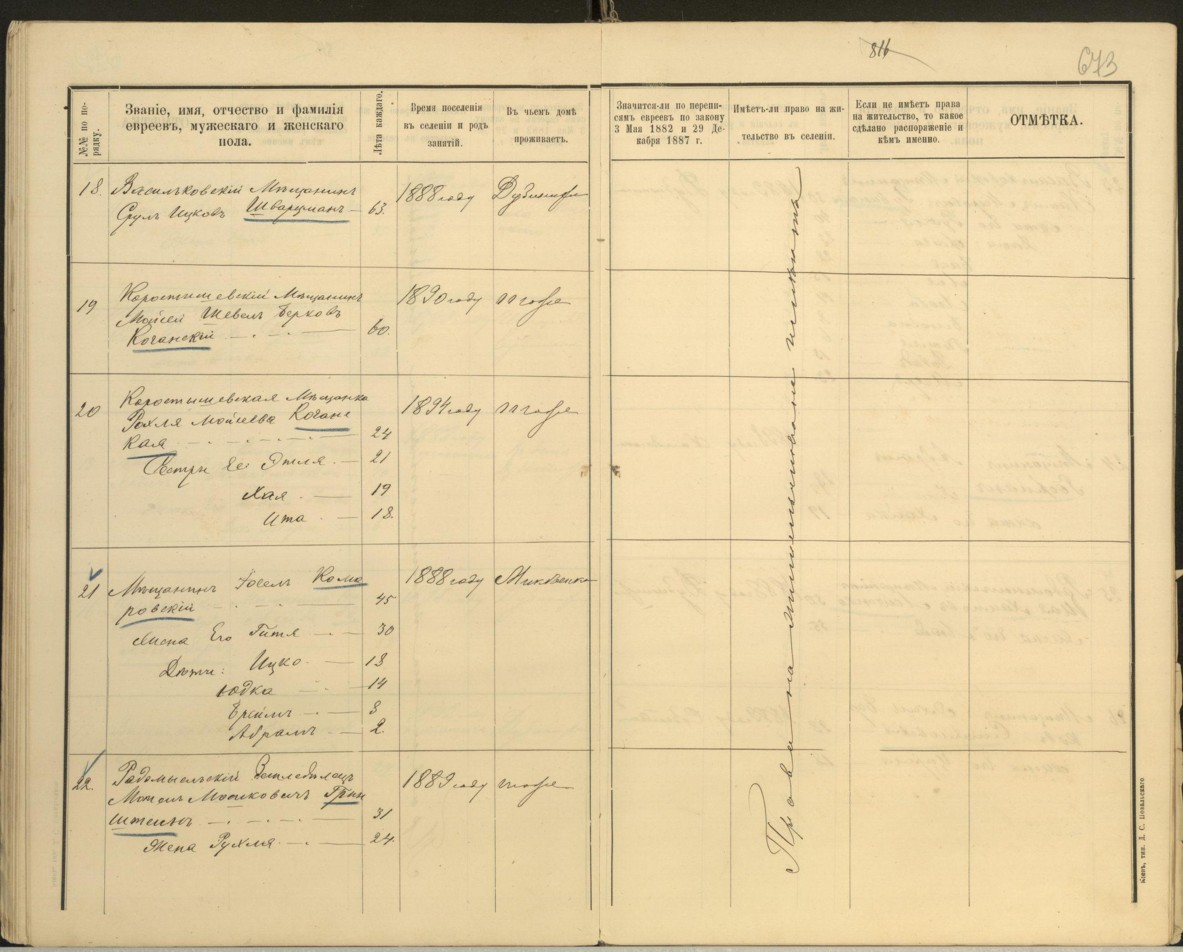 816
643
№№ по по-
рядку.
Званіе, имя, отчество и фамилія
евреевъ, мужескаго и женскаго
пола.
Лѣта каждаго.
Время поселенія
въ селеніи и родъ
занятій.
Въ чьемъ домѣ
проживаетъ.
Значится-ли по перепи-
симъ евреевъ по закону
3 Мая 1882 и 29 Де-
кабря 1887 г.
Имѣетъ-ли право на жи-
тельство въ селеніи.
Если не имѣетъ права
на жительство, то какое
сдѣлано распоряженіе и
кѣмъ именно.
ОТМѢТКА.
18 Васильковскій Мѣщанинъ 1888 году
Срулъ Ицковъ Шварцманъ — 65.
19 Коростышевскій Мѣщанинъ 1890 году
Мойсей Шевель Берковъ
Коганскій — 60.
20 Коростышевская Мѣщанка 1894 году
Рохля Мойсеева Коганс
кая — 24
Сестри Ее Этля. — 21
Хая. — 19
Ита. — 18.
21 Мѣщанинъ Іосель Комо 1888 году
ровскій — 45
Жена Его Гитля — 30
Дѣти: Ицко. — 18
Юдка — 14
Сроимъ — 8
Абрамъ — 2.
22. Радомысльскій 1889 году
Мотель Мошковичъ Грин
штейнъ — 31
Жена Рухля. — 24
Права на жительство не имѣютъ
Кіевъ, тип. Д. С. Повальскаго